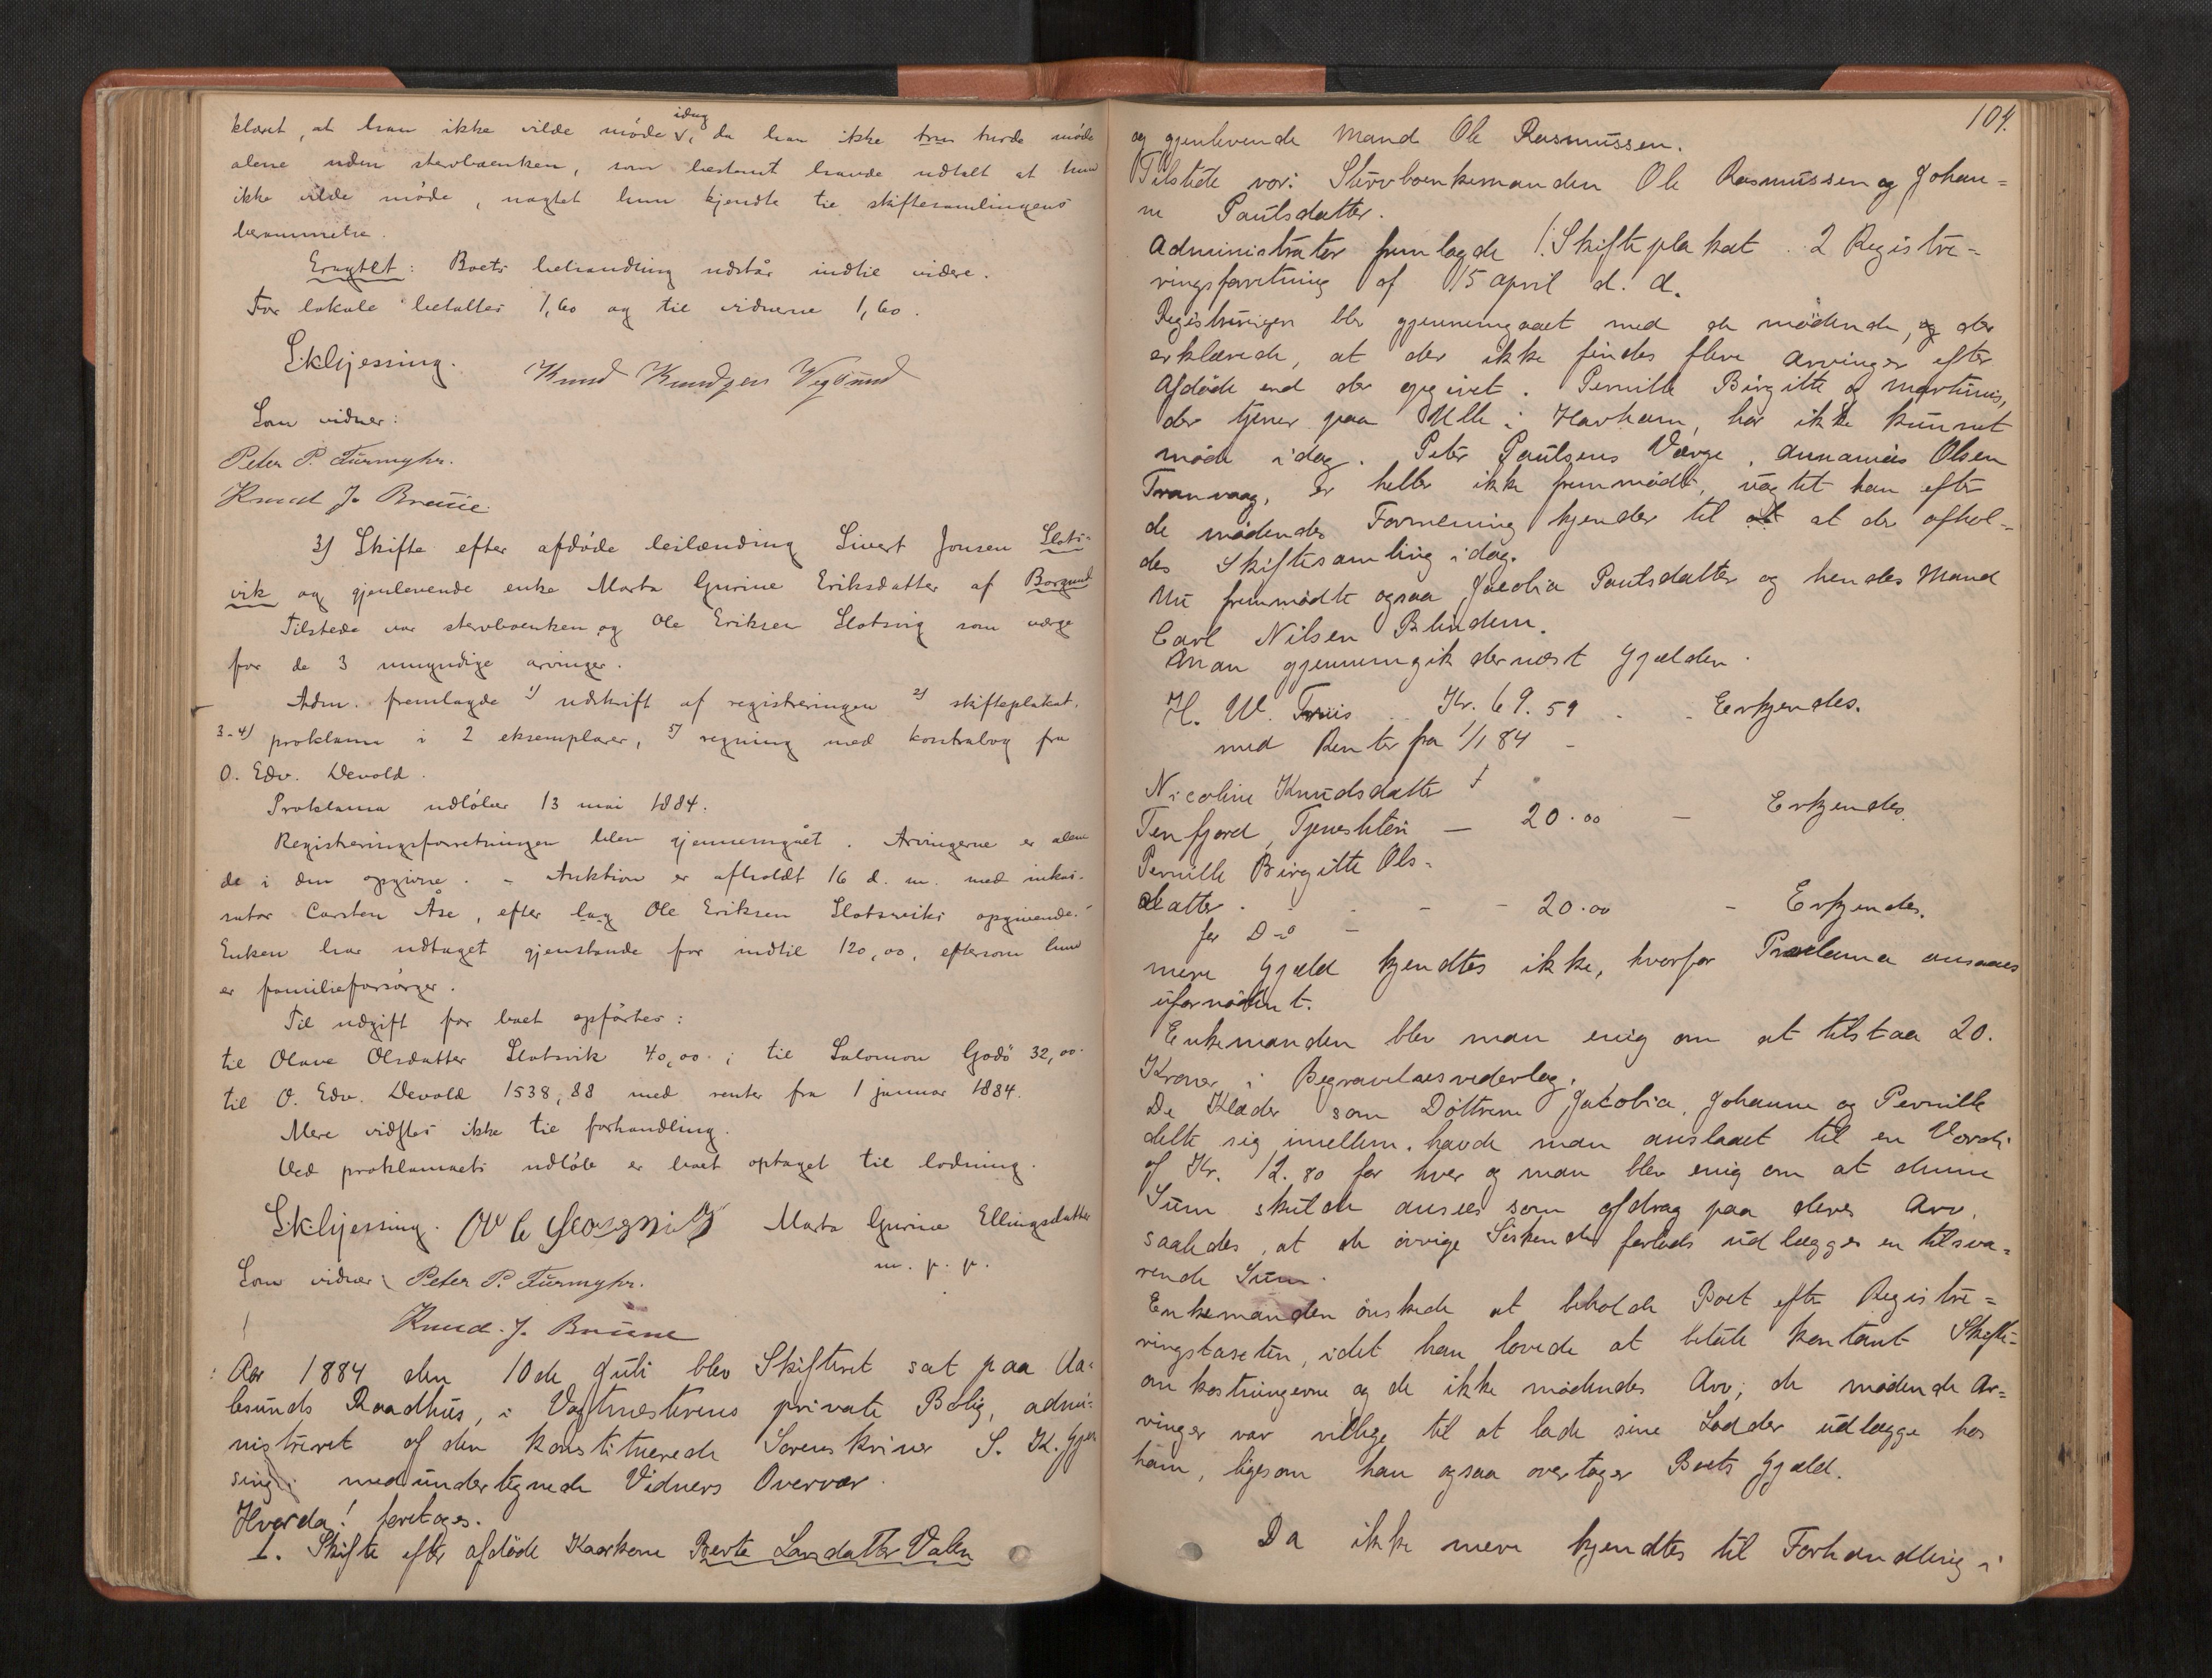 klæret, at han ikke vilde møde idag, da han ikke turde møde
alene uden stervboenken, som bestemt havde udtalt at hun
ikke vilde møde, uagtet hun kjendte til skiftesamlingens
berammelse.
Eragtet: Boets behandling udstår indtil videre.
For lokale betaltes 1,60 og til vidnerne 1,60.
S.k.hjessing. Knud Knudsen Vegsund
Som vidner:
Peter P. Furmyhr.
Knud J. Brune
3) Skifte efter afdøde leilænding Sivert Jonsen Slots-
vik og gjenlevende enke Marta Gurine Eriksdatter af Borgund
Tilstede var stervboenken og Ole Eriksen Slotsvig som værge
for de 3 umyndige arvinger.
Adm. fremlagde 1) udskrift af registreringen 2) skifteplakat.
3-4) proklama i 2 eksemplarer, 5) regning med kontrabog fra
O. Edv. Devold.
Proklama udløber 13 mai 1884.
Registreringsforretningen blev gjennemgået. Arvingerne er alene
de i den opgivne. - Auktion er afholdt 16 d. m. med inkas-
sator Carsten Åse, efter lag Ole Eriksen Slotsviks opgivende.
Enken har udtaget gjenstande for indtil 120,00, eftersom hun
er familieforsørger.
Til udgift for boet opførtes:
til Olave Olsdatter Slotsvik 40,00; til Salomon Godø 32,00.
til O. Edv. Devold 1538,88 med renter fra 1 januar 1884.
Mere vidstes ikke til forhandling.
Ved proklamaets udløb er boet optaget til lodning.
S.k.hjessing. Ole Marta Gurine Ellingsdatter
m. f. p.
Som vidner: Peter P. Furmyhr.
Knud. J. Brune
Aar 1884 den 10de Juli blev Skifteret sat paa Aa-
lesunds Raadhus, i Vagtmesterens private Bolig, admi-
nistreret af den konstituerede Sorenskriver S. K. Hjes
sing med undertegnede Vidners Overvær.
Hvorda! foretoges.
1. Skifte efter afdøde Kaarkone Berte Larsdatter Valen
104.
og gjenlevende Mand Ole Rasmussen.
Tilstede var: Stervboenkemanden Ole Rasmussen og Johan-
ne Paulsdatter.
Administrator fremlagde 1. Skifteplakat. 2 Registre-
ringsforretning af 15 april d. A.
Registreringen blev gjennemgaaet med de mødende, og der
erklærede, at der ikke findes flere Arvinger efter
Afdøde end der opgivet. Pernille Birgitte og Martinus,
der tjener paa Ulle i Havham, har ikke kunnet
møde idag. Peter Paulsens Værge, Annanias Olsen
Tranvaag, er heller ikke fremmødt, uagtet han efter
de mødendes Formening kjender til at at der afhol-
des Skiftesamling idag.
Nu fremmødte ogsaa Jacobia Paulsdatter og hendes Mand
Carl Nilsen Blindem.
Man gjennemgik dernæst Gjælden.
H. W. Friis Kr. 69.59 Erkjendes.
med Renter fra 1/1 84 -
Nicoline Knudsdatter
Tenfjord, Tjenesteløn - 20.00 - Erkjendes.
Pernille Birgitte Ols-
datter - - 20.00 - Erkjendes.
for D-o -
mere Gjæld kjendtes ikke, hvorfor Proclama ansaaes
ufornødent.
Enkemanden blev man enig om at tilstaa 20.
Kroner i Begravelsesvederlag.
De Klæder som Døttrene Jakobia, Johanne og Pernille
delte sig imellem, havde man anslaaet til en Værdi
af Kr. 12.80 for hver og man blev enig om at denne
Sum skulde ansees som afdrag paa deres Arv,
saaledes, at de øvrige Siskende forlods udlægges en tilsva-
rende Sum.
Enkemanden ønskede at beholde Boet efter Registre-
ringstaxten, idet han lovede at betale kontant Skifte-
omkostningerne og de ikke mødendes Arv; de mødende Ar-
vinger var villige til at lade sine Lodder udlægge hos
ham, ligesom han ogsaa overtager Boets Gjæld.
Da ikke mere kjendtes til Forhandling i